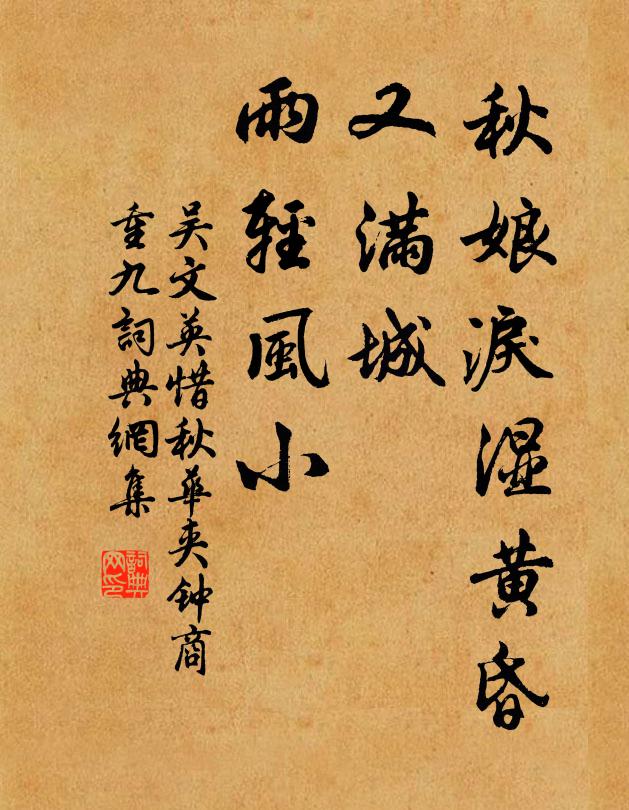 秋娘淚湿黄昏
又滿城
雨輕風小
吴文英惜秋華夹钟商
重九詞典網集
詞典网印